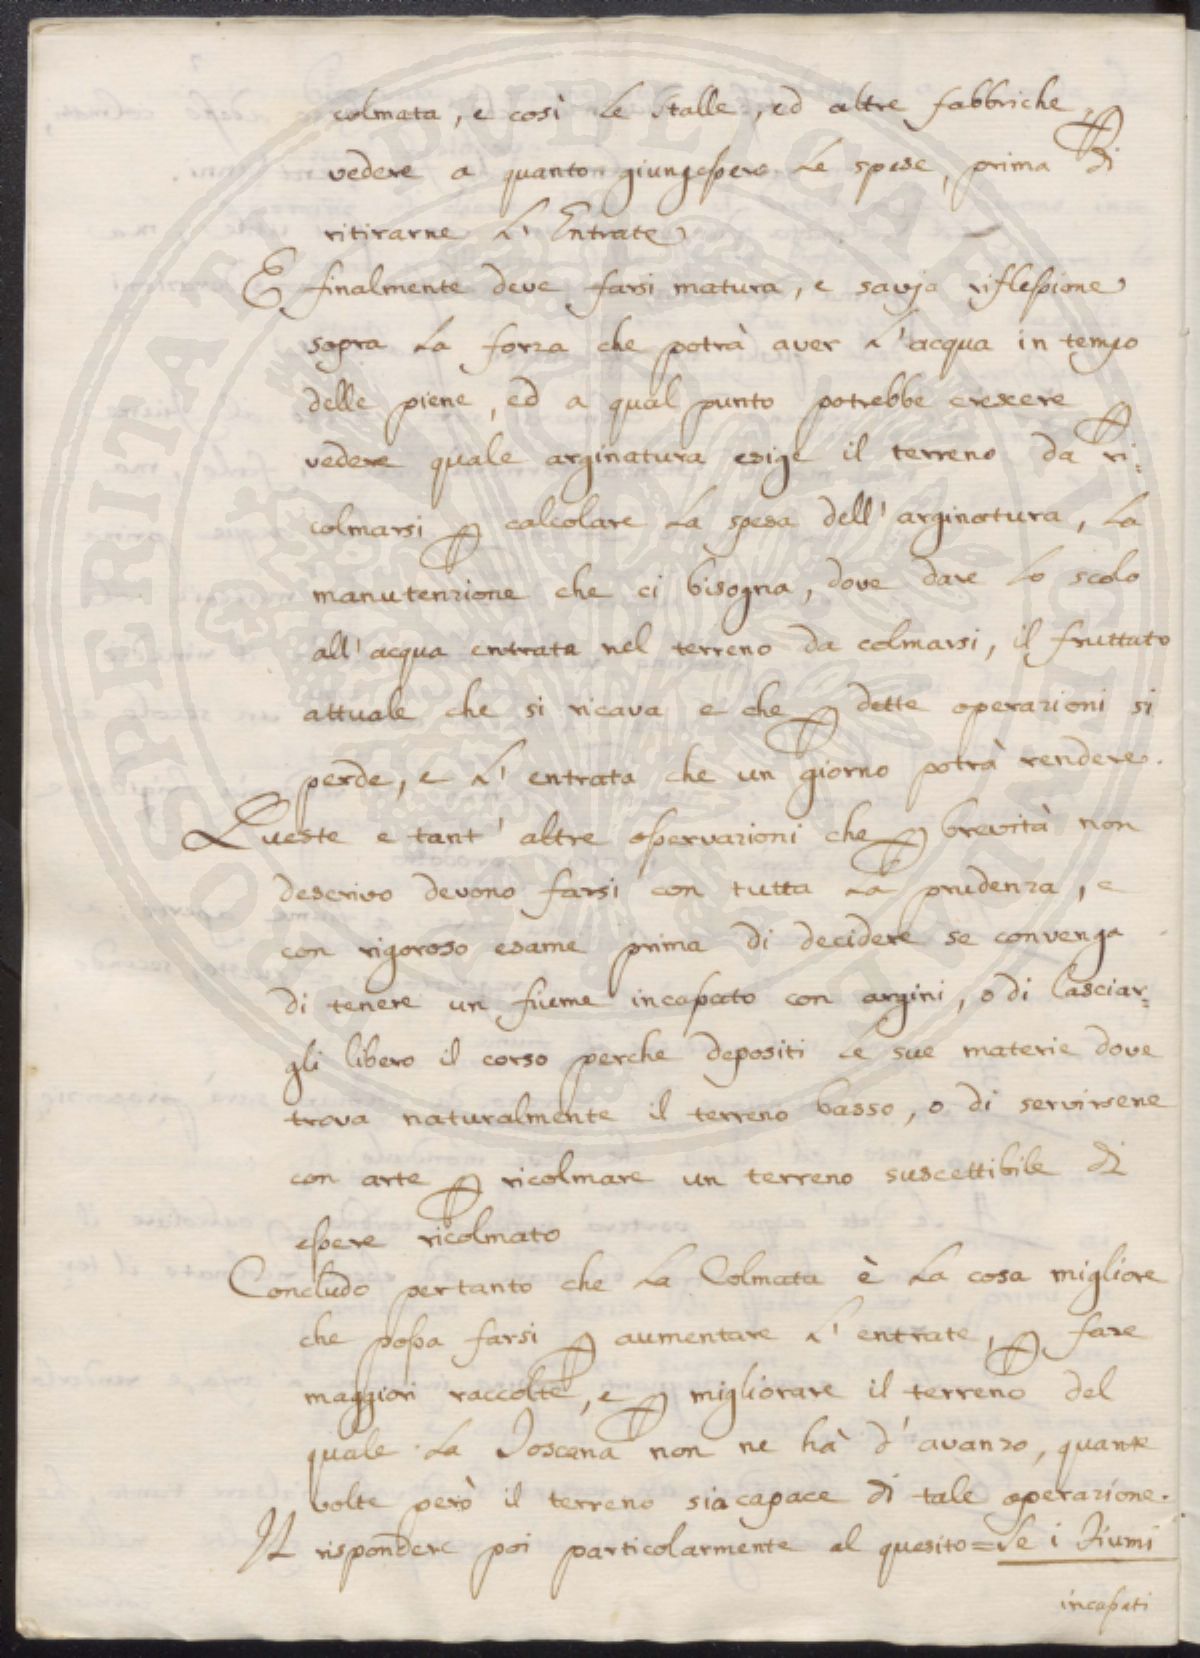 colmata, e così le stalle, ed altre fabbriche, ꝑ
vedere a quanto giungessero le spese, prima di
ritirarne l'Entrate
E finalmente deve farsi matura, e savja riflessione
sopra la forza che potrà aver l'acqua in tempo
delle piene, ed a qual punto potrebbe crescere ꝑ
vedere quale arginatura esige il terreno da ri:
colmarsi ꝑ calcolare la spesa dell'arginatura, la
manutenzione che ci bisogna, dove dare lo scolo
all'acqua entrata nel terreno da colmarsi, il fruttato
attuale che si ricava e che ꝑ dette operazioni si
perde, e l'entrata che un giorno potrà rendere.
Queste e tant'altre osservazioni che ꝑ brevità non
descrivo devono farsi con tutta la prudenza, e
con rigoroso esame prima di decidere se convenga
di tenere un fiume incassato con argini, o di lasciar=
gli libero il corso perche depositi le sue materie dove
trova naturalmente il terreno basso, o di servirsene
con arte ꝑ ricolmare un terreno suscettibile di
essere ricolmato
Concludo pertanto che la Colmata è la cosa migliore
che possa farsi ꝑ aumentare l'entrate, ꝑ fare
maggiori raccolte, e ꝑ migliorare il terreno del
quale la Toscana non ne hà d'avanzo, quante
volte però il terreno sia capace di tale operazione.
Il rispondere poi particolarmente al quesito = Se i Fiumi
incassati
PROSPERITATI PUBLICAE AUGENDAE